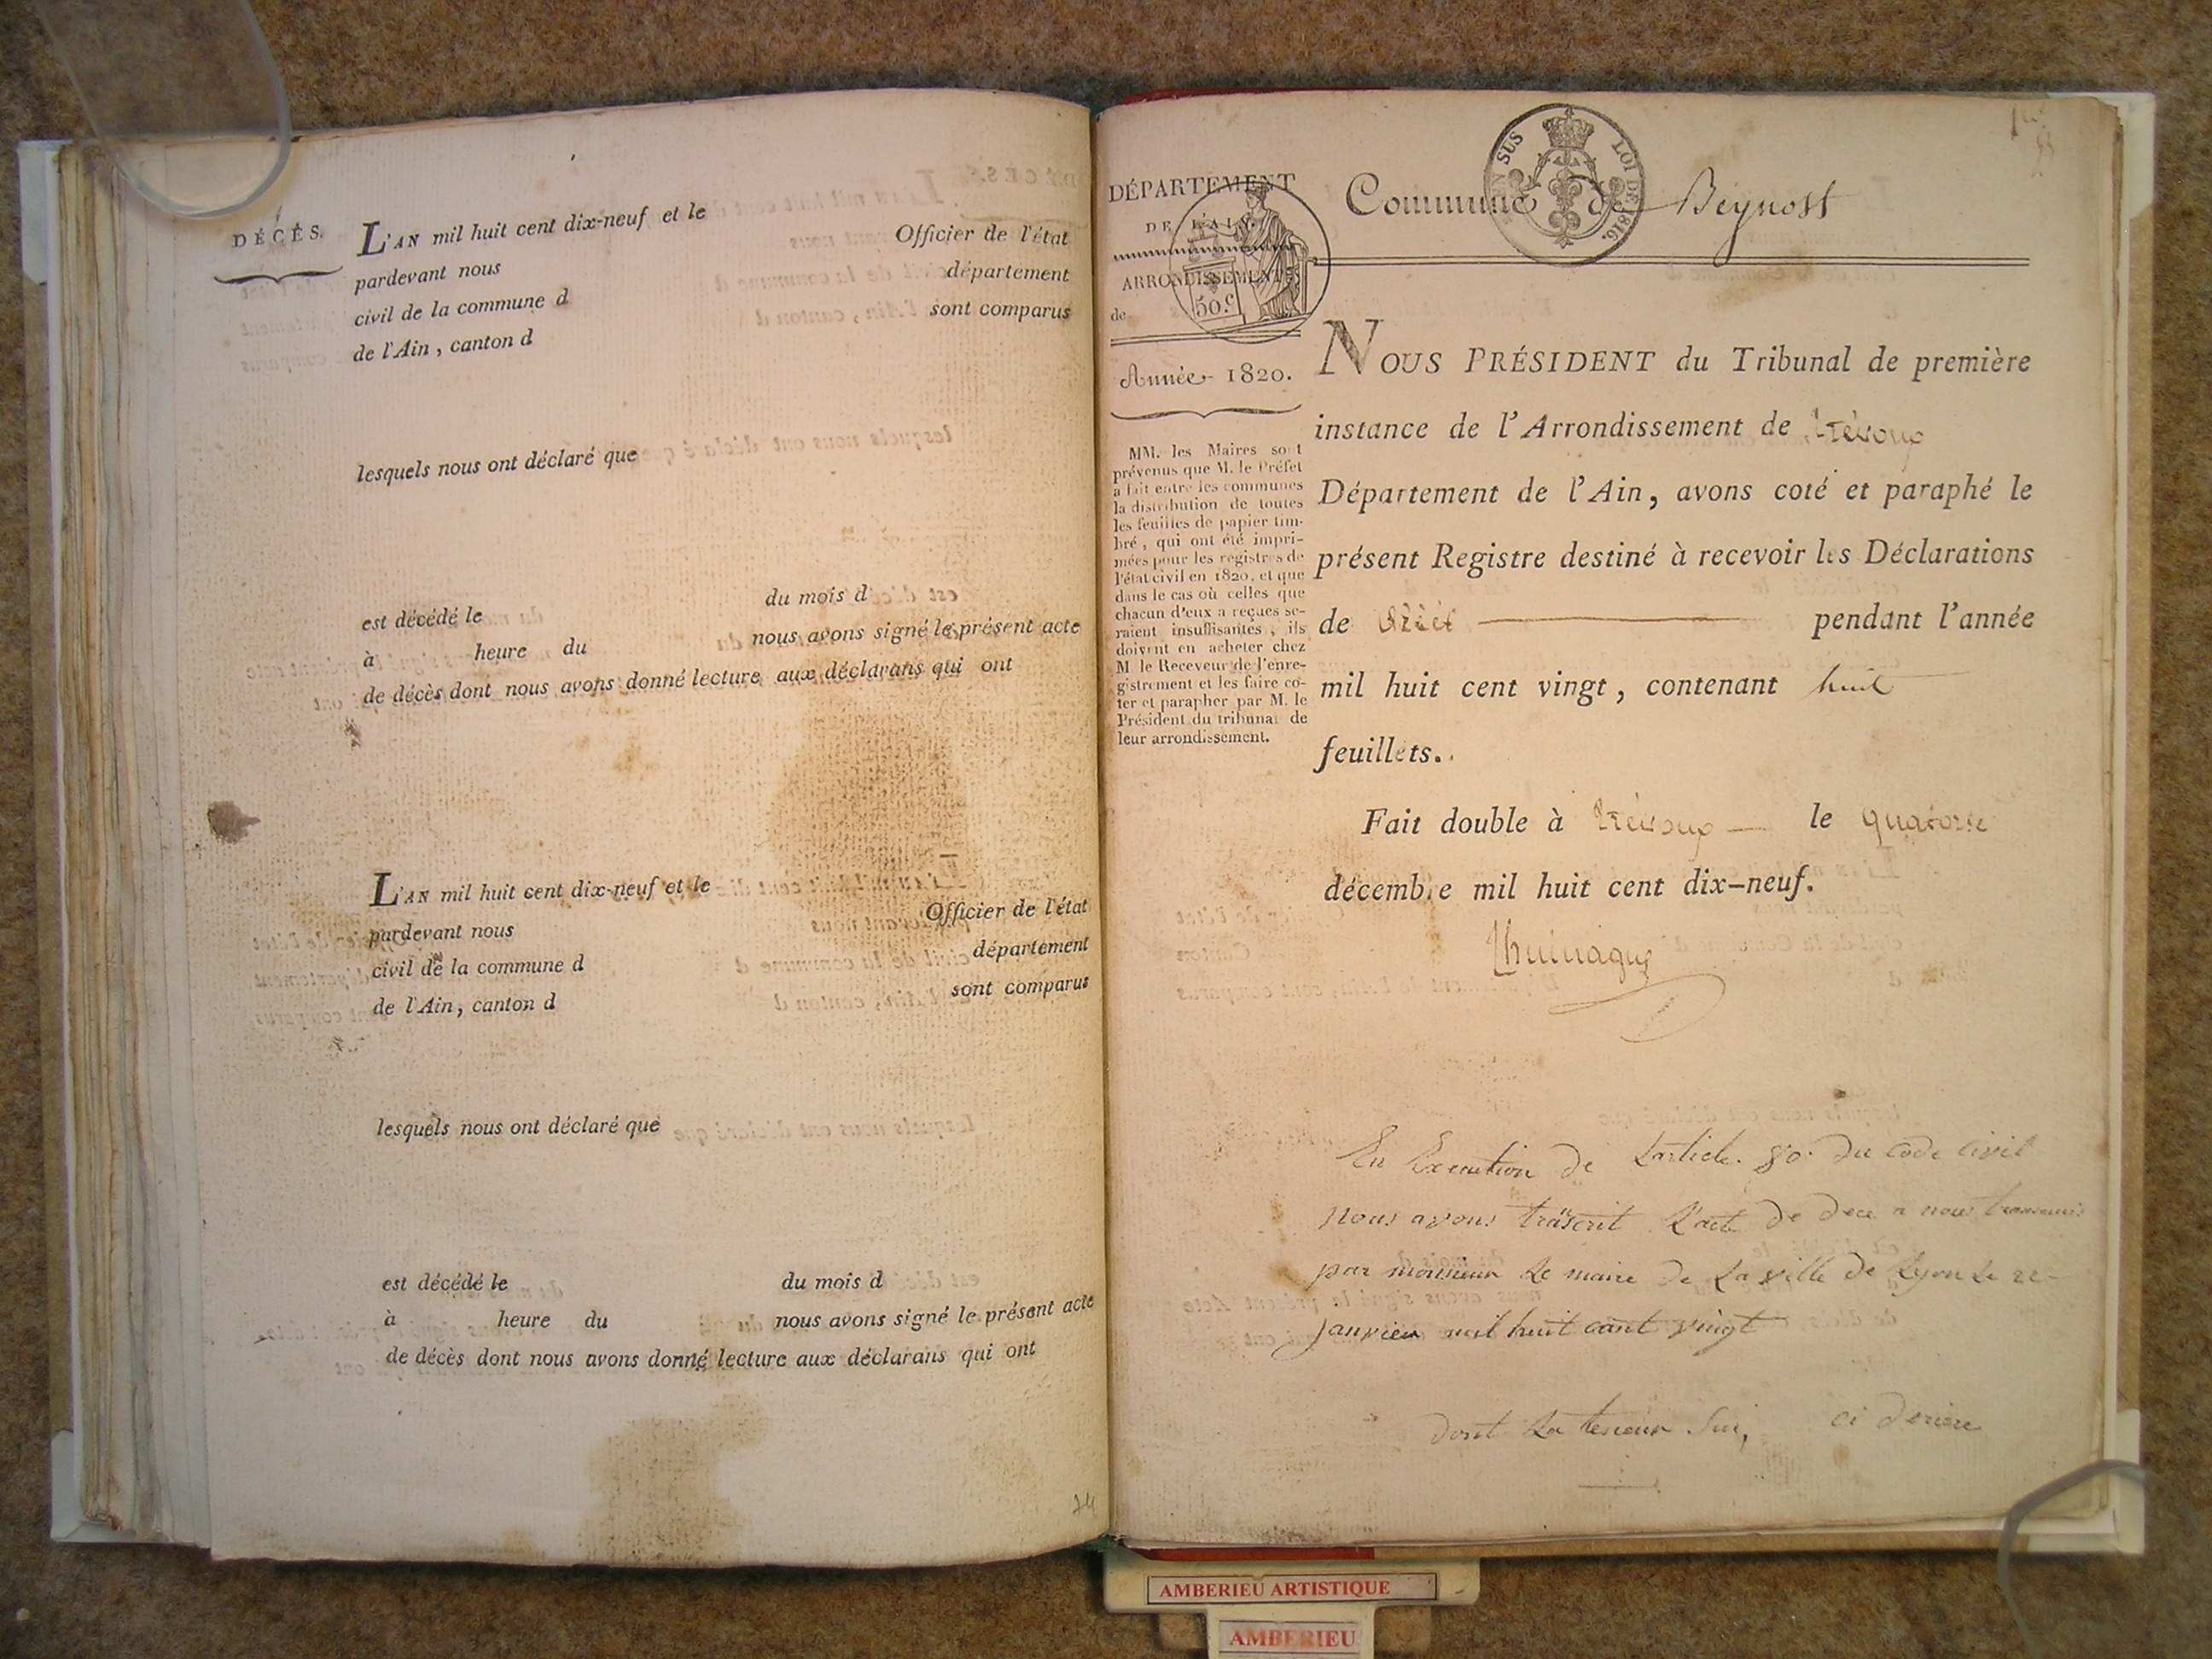 DÉCÈS.
L'AN mil huit cent dix-neuf et le
pardevant nous Officier de l'état
civil de la commune d département
de l'Ain, canton d sont comparus
lesquels nous ont déclaré que
est décédé le du mois d
à heure du nous avons signé le présent acte
de décès dont nous avons donné lecture aux déclarans qui ont
L'AN mil huit cent dix-neuf et le
pardevant nous Officier de l'état
civil de la commune d département
de l'Ain, canton d sont comparus
lesquels nous ont déclaré que
est décédé le du mois d
à heure du nous avons signé le présent acte
de décès dont nous avons donné lecture aux déclarans qui ont
74
DÉPARTEMENT
DE L'AIN.
ARRONDISSEMENT
de
50.c
Année 1820.
MM. les Maires sont
prévenus que M. le Préfet
a fait entre les communes
la distribution de toutes
les feuilles de papier tim-
bré, qui ont été impri-
mées pour les registres de
l'état civil en 1820, et que
dans le cas où celles que
chacun d'eux a reçues se-
raient insuffisantes, ils
doivent en acheter chez
M. le Receveur de l'enre-
gistrement et les faire co-
ter et parapher par M. le
Président du tribunal de
leur arrondissement.
SUS LOI DE 1816.
Commune de Beynost
NOUS PRÉSIDENT du Tribunal de première
instance de l'Arrondissement de Trévoux
Département de l'Ain, avons coté et paraphé le
présent Registre destiné à recevoir les Déclarations
de pendant l'année
mil huit cent vingt, contenant huit
feuillets.
Fait double à Trévoux le quatorze
décembre mil huit cent dix-neuf.
En Execution de L'article 80. du Code Civil
nous avons trascrit L'acte de dece a nous transmis
par monsieur Le maire de La ville de Lyon Le 22
janvier mil huit cant vingt
dont La teneur Sui, ci deriere
AMBERIEU ARTISTIQUE
AMBERIEU